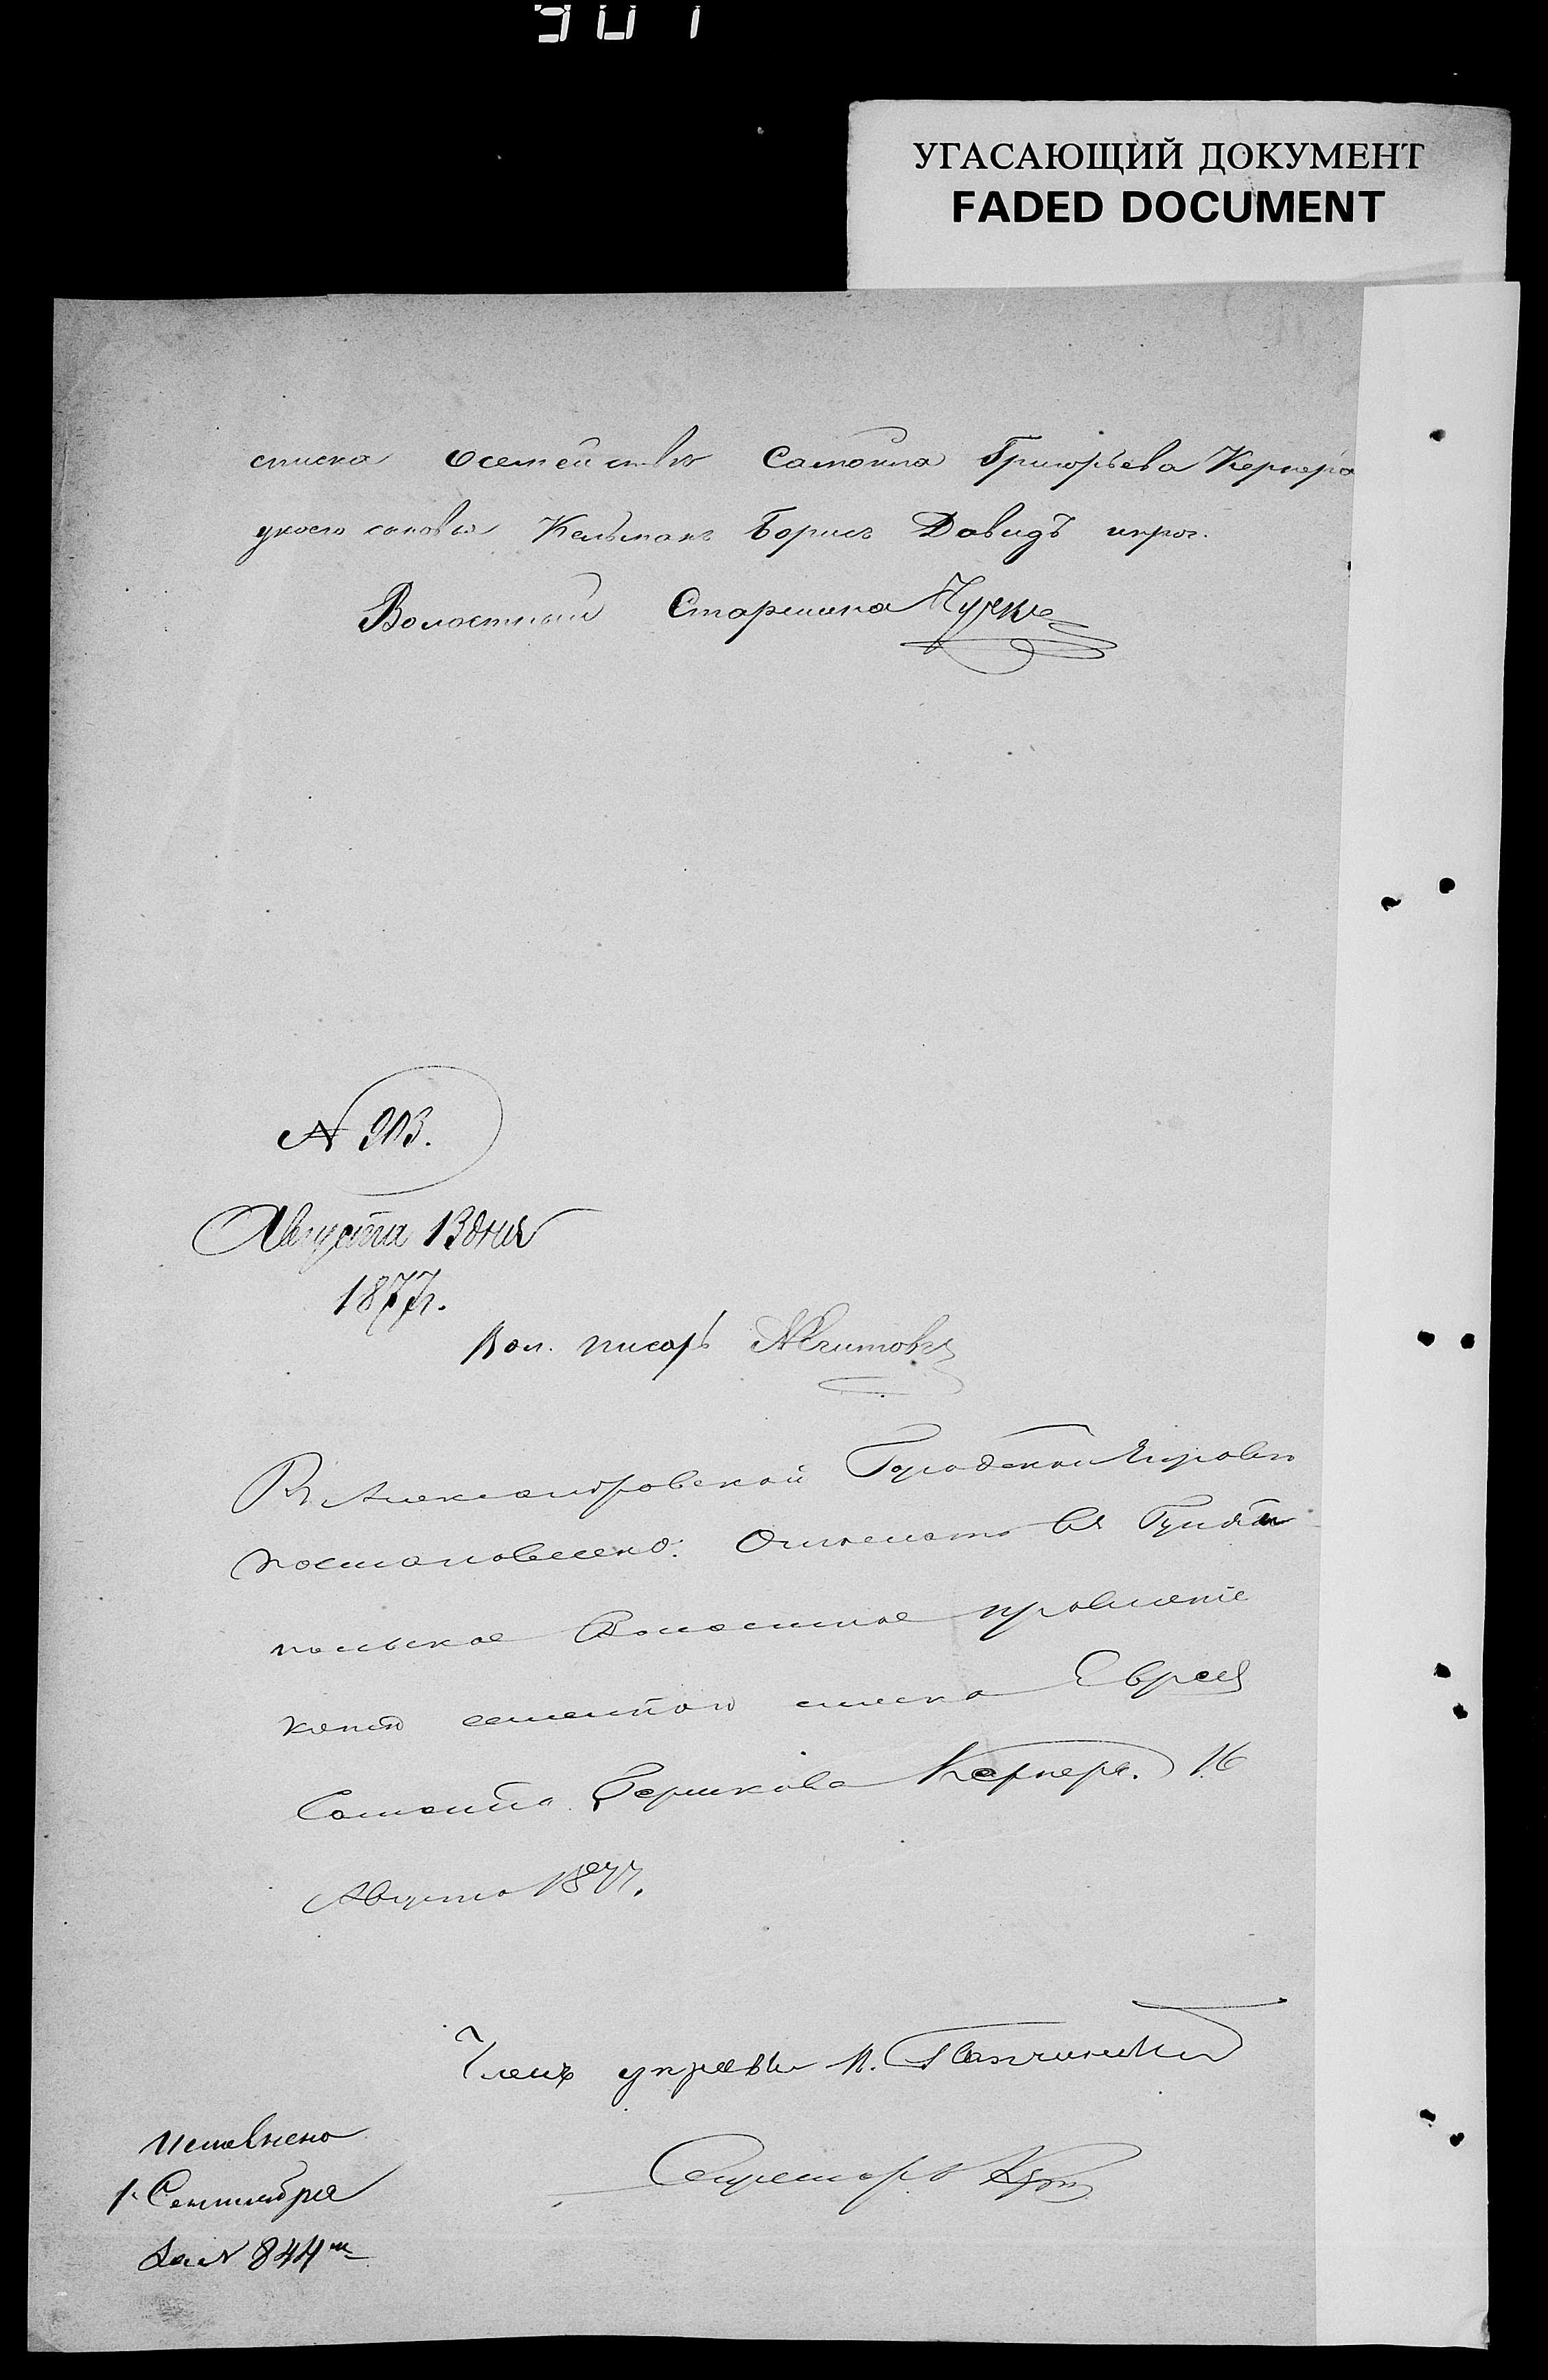 УГАСАЮЩИЙ ДОКУМЕНТ
FADED DOCUMENT
списка о семействѣ Самойла Григорьева Кернера
у коего сыновья Кельманъ Борисъ Давидъ и проч.
Волостный Старшина
№ 903.
Августа 13 дня
1877 г.
Вол. писарь
Въ Александровской Городской Управѣ
постановлено: Отослать въ Гуляй
польское Волостное правленіе
копію семейного списка Еврея
Самойла Бершкова Кернера. 16
Августа 1877.
Членъ управы
Секретарь
Исполнено
1. Сентября
за № 844